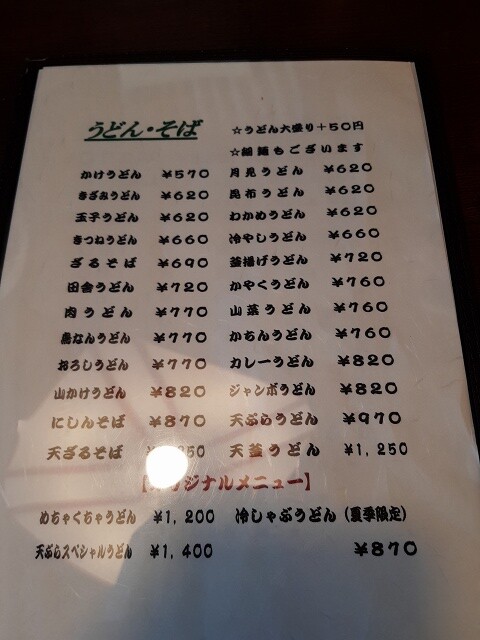 うどん・そば
☆うどん大盛り+50円
☆細麺もございます
かけうどん ¥570 月見うどん ¥620
きざみうどん ¥620 昆布うどん ¥620
玉子うどん ¥620 わかめうどん ¥620
きつねうどん ¥660 冷やしうどん ¥660
ざるそば ¥690 釜揚げうどん ¥720
田舎うどん ¥720 かやくうどん ¥760
肉うどん ¥770 山菜うどん ¥760
鳥なんうどん ¥770 かちんうどん ¥760
おろしうどん ¥770 カレーうどん ¥820
山かけうどん ¥820 ジャンボうどん ¥820
にしんそば ¥870 天ぷらうどん ¥970
天ざるそば 天釜うどん ¥1,250
ジナルメニュー】
めちゃくちゃうどん ¥1,200 冷しゃぶうどん(夏季限定)
天ぷらスペシャルうどん ¥1,400 ¥870